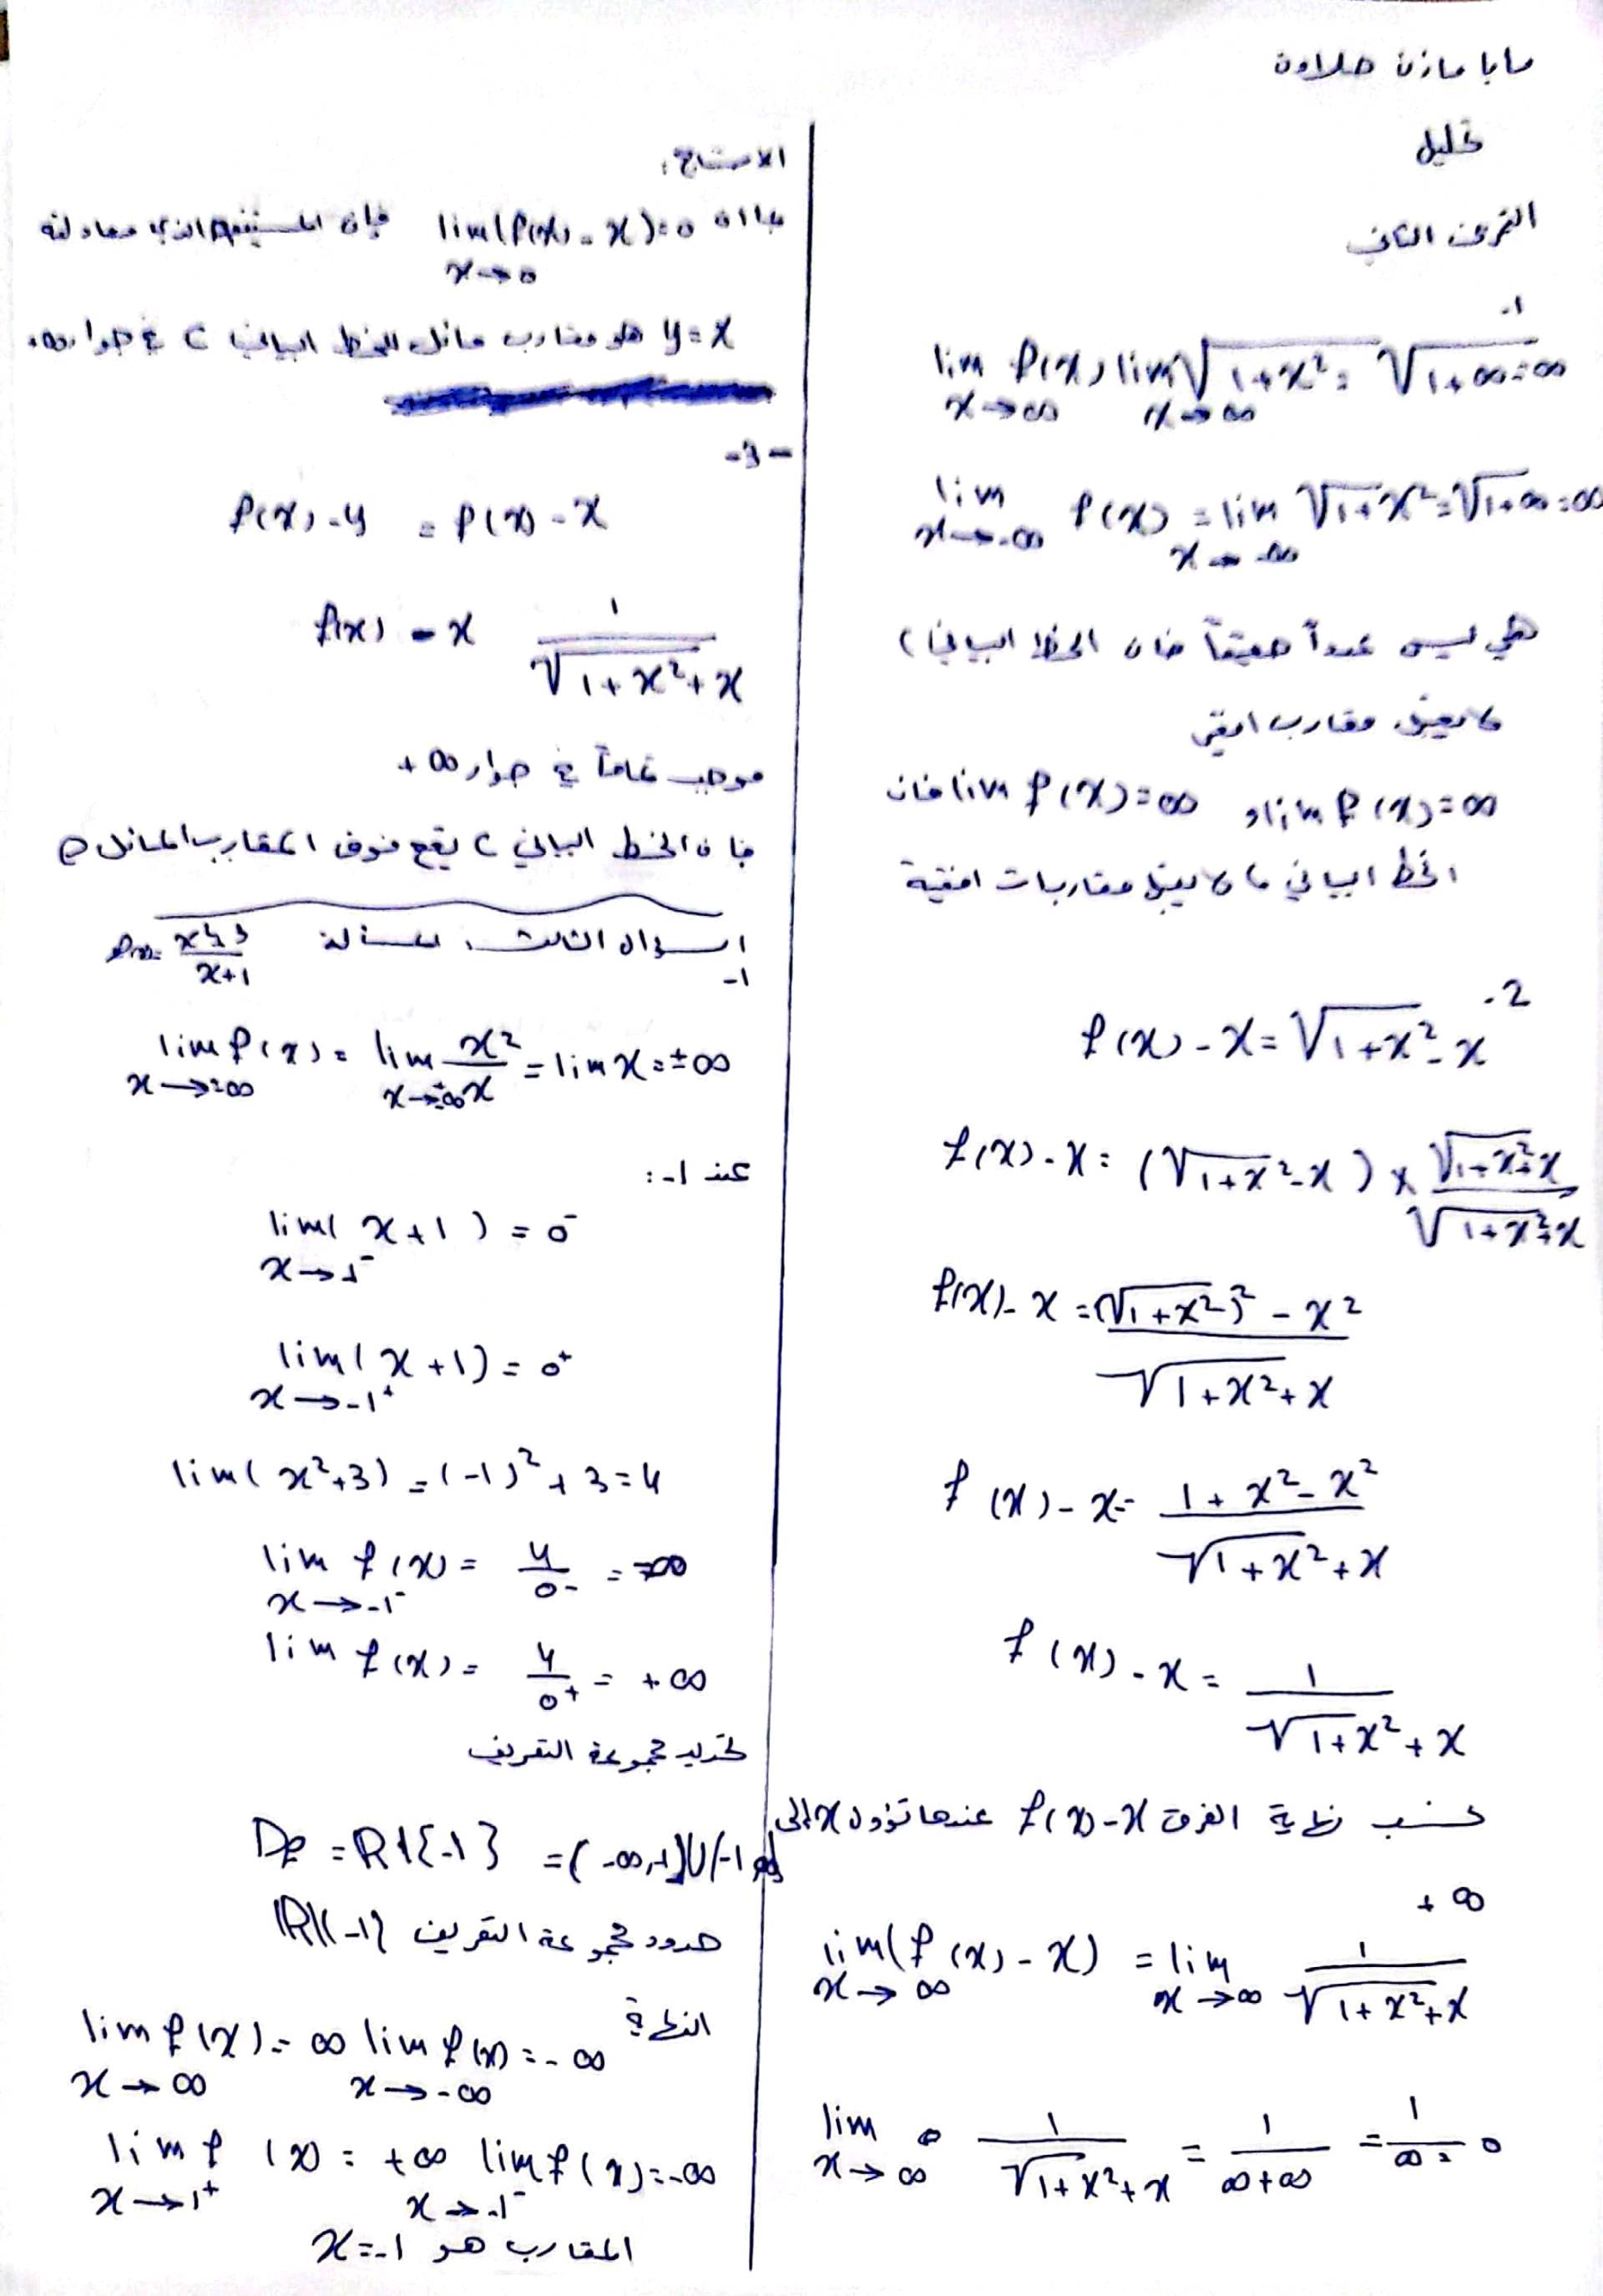 مايا مازن حلاوة
تحليل
التمرين الثاني
1-
lim f(x) lim √1+x² = √1+∞=∞
x→∞ x→∞
lim f(x) = lim √1+x² = √1+∞ = ∞
x→-∞ x→-∞
هي ليس عدداً حقيقياً فان الخط البياني C
مقارب افقي
lim f(x)=∞ و lim f(x)=∞ فان
الخط البياني مقاربات افقية
-2
f(x) - x = √1+x² - x
f(x) - x = (√1+x² - x) × √1+x²+x / √1+x²+x
f(x) - x = (√1+x²)² - x² / √1+x²+x
f(x) - x = 1+x²-x² / √1+x²+x
f(x) - x = 1 / √1+x²+x
نحسب نهاية الفرق f(x)-x عندما تؤول x إلى
+∞
lim(f(x) - x) = lim 1 / √1+x²+x
x→∞ x→∞
lim 1 / √1+x²+x = 1 / ∞+∞ = 1/∞ = 0
x→∞
الاستنتاج:
بما ان lim(f(x) - x)=0 فإن المستقيم الذي معادلته
x→∞
y=x هو مقارب مائل للخط البياني C في جوار +∞
-3-
f(x) - y = f(x) - x
f(x) - x 1 / √1+x²+x
موجب تماماً في جوار +∞
فان الخط البياني C يقع فوق المقارب المائل
السؤال الثالث: المسألة f(x)= x²+3 / x+1
1-
lim f(x) = lim x²/x = lim x = ±∞
x→±∞ x→±∞
عند 1-:
lim( x+1 ) = 0⁻
x→1⁻
lim( x+1) = 0⁺
x→-1⁺
lim( x²+3) = (-1)²+3=4
lim f(x) = 4/0- = -∞
x→-1⁻
lim f(x) = 4/0+ = +∞
تحديد مجموعة التعريف
Df = R\{-1} =(-∞,-1)U(-1,∞)
حدود مجموعة التعريف R\{-1}
النهاية
lim f(x) = ∞ lim f(x) = -∞
x→∞ x→-∞
lim f(x) = +∞ lim f(x) = -∞
x→1⁺ x→-1⁻
المقارب هو x=-1